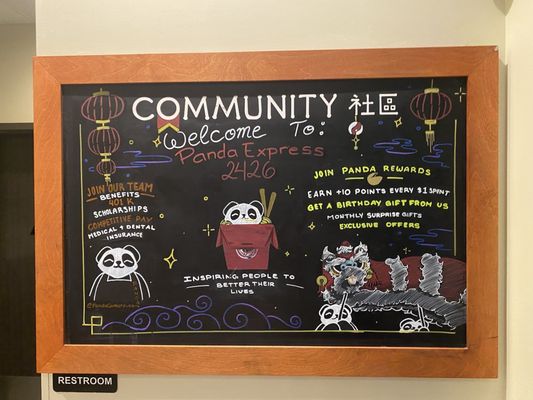 COMMUNITY 社區
Welcome To:
Panda Express
2426
JOIN OUR TEAM
BENEFITS
401 K
SCHOLARSHIPS
COMPETITIVE PAY
MEDICAL + DENTAL
INSURANCE
INSPIRING PEOPLE TO
BETTER THEIR
LIVES
JOIN PANDA REWARDS
EARN +10 POINTS EVERY $1 SPENT
GET A BIRTHDAY GIFT FROM US
MONTHLY SURPRISE GIFTS
EXCLUSIVE OFFERS
RESTROOM